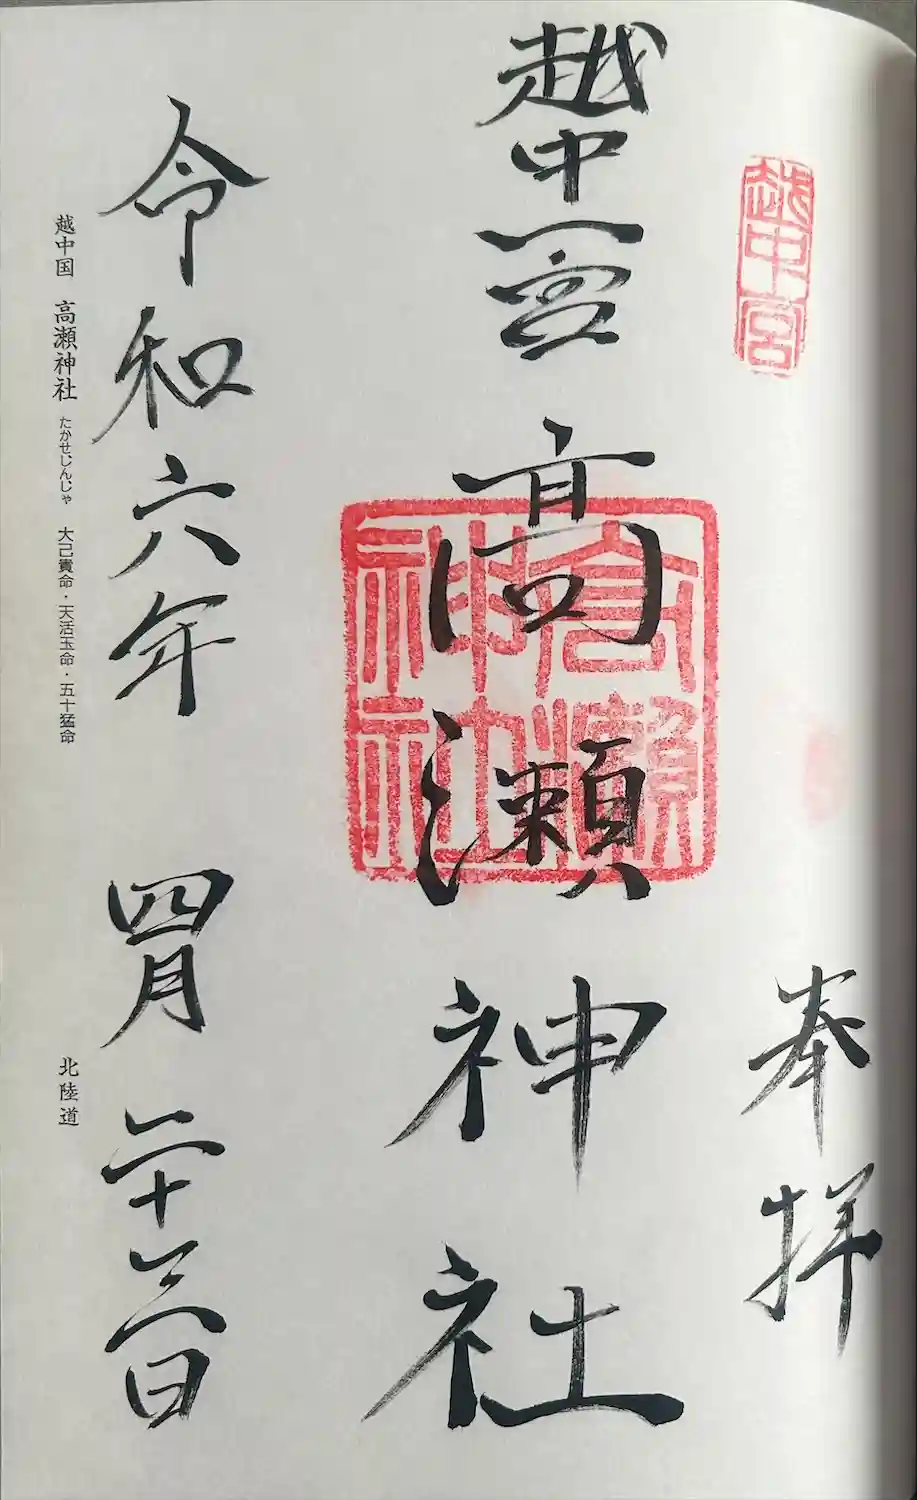 奉拝
越中宮
越中一宮 高瀬神社
高瀬神社
令和六年 四月 二十三日
越中国 高瀬神社 たかせじんじゃ 大己貴命・天活玉命・五十猛命 北陸道